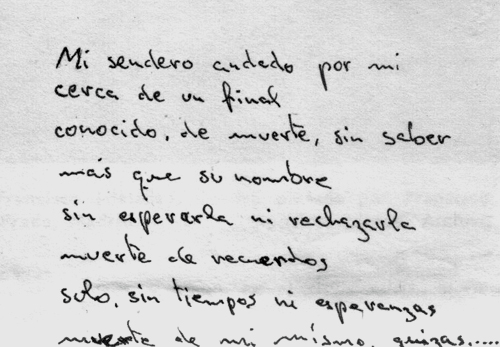 Mi sendero andado por mi
cerca de un final
conocido, de muerte, sin saber
más que su nombre
sin esperarla ni rechazarla
muerte de recuerdos
solo, sin tiempos ni esperanzas
muerte de mi mismo, quizas.....